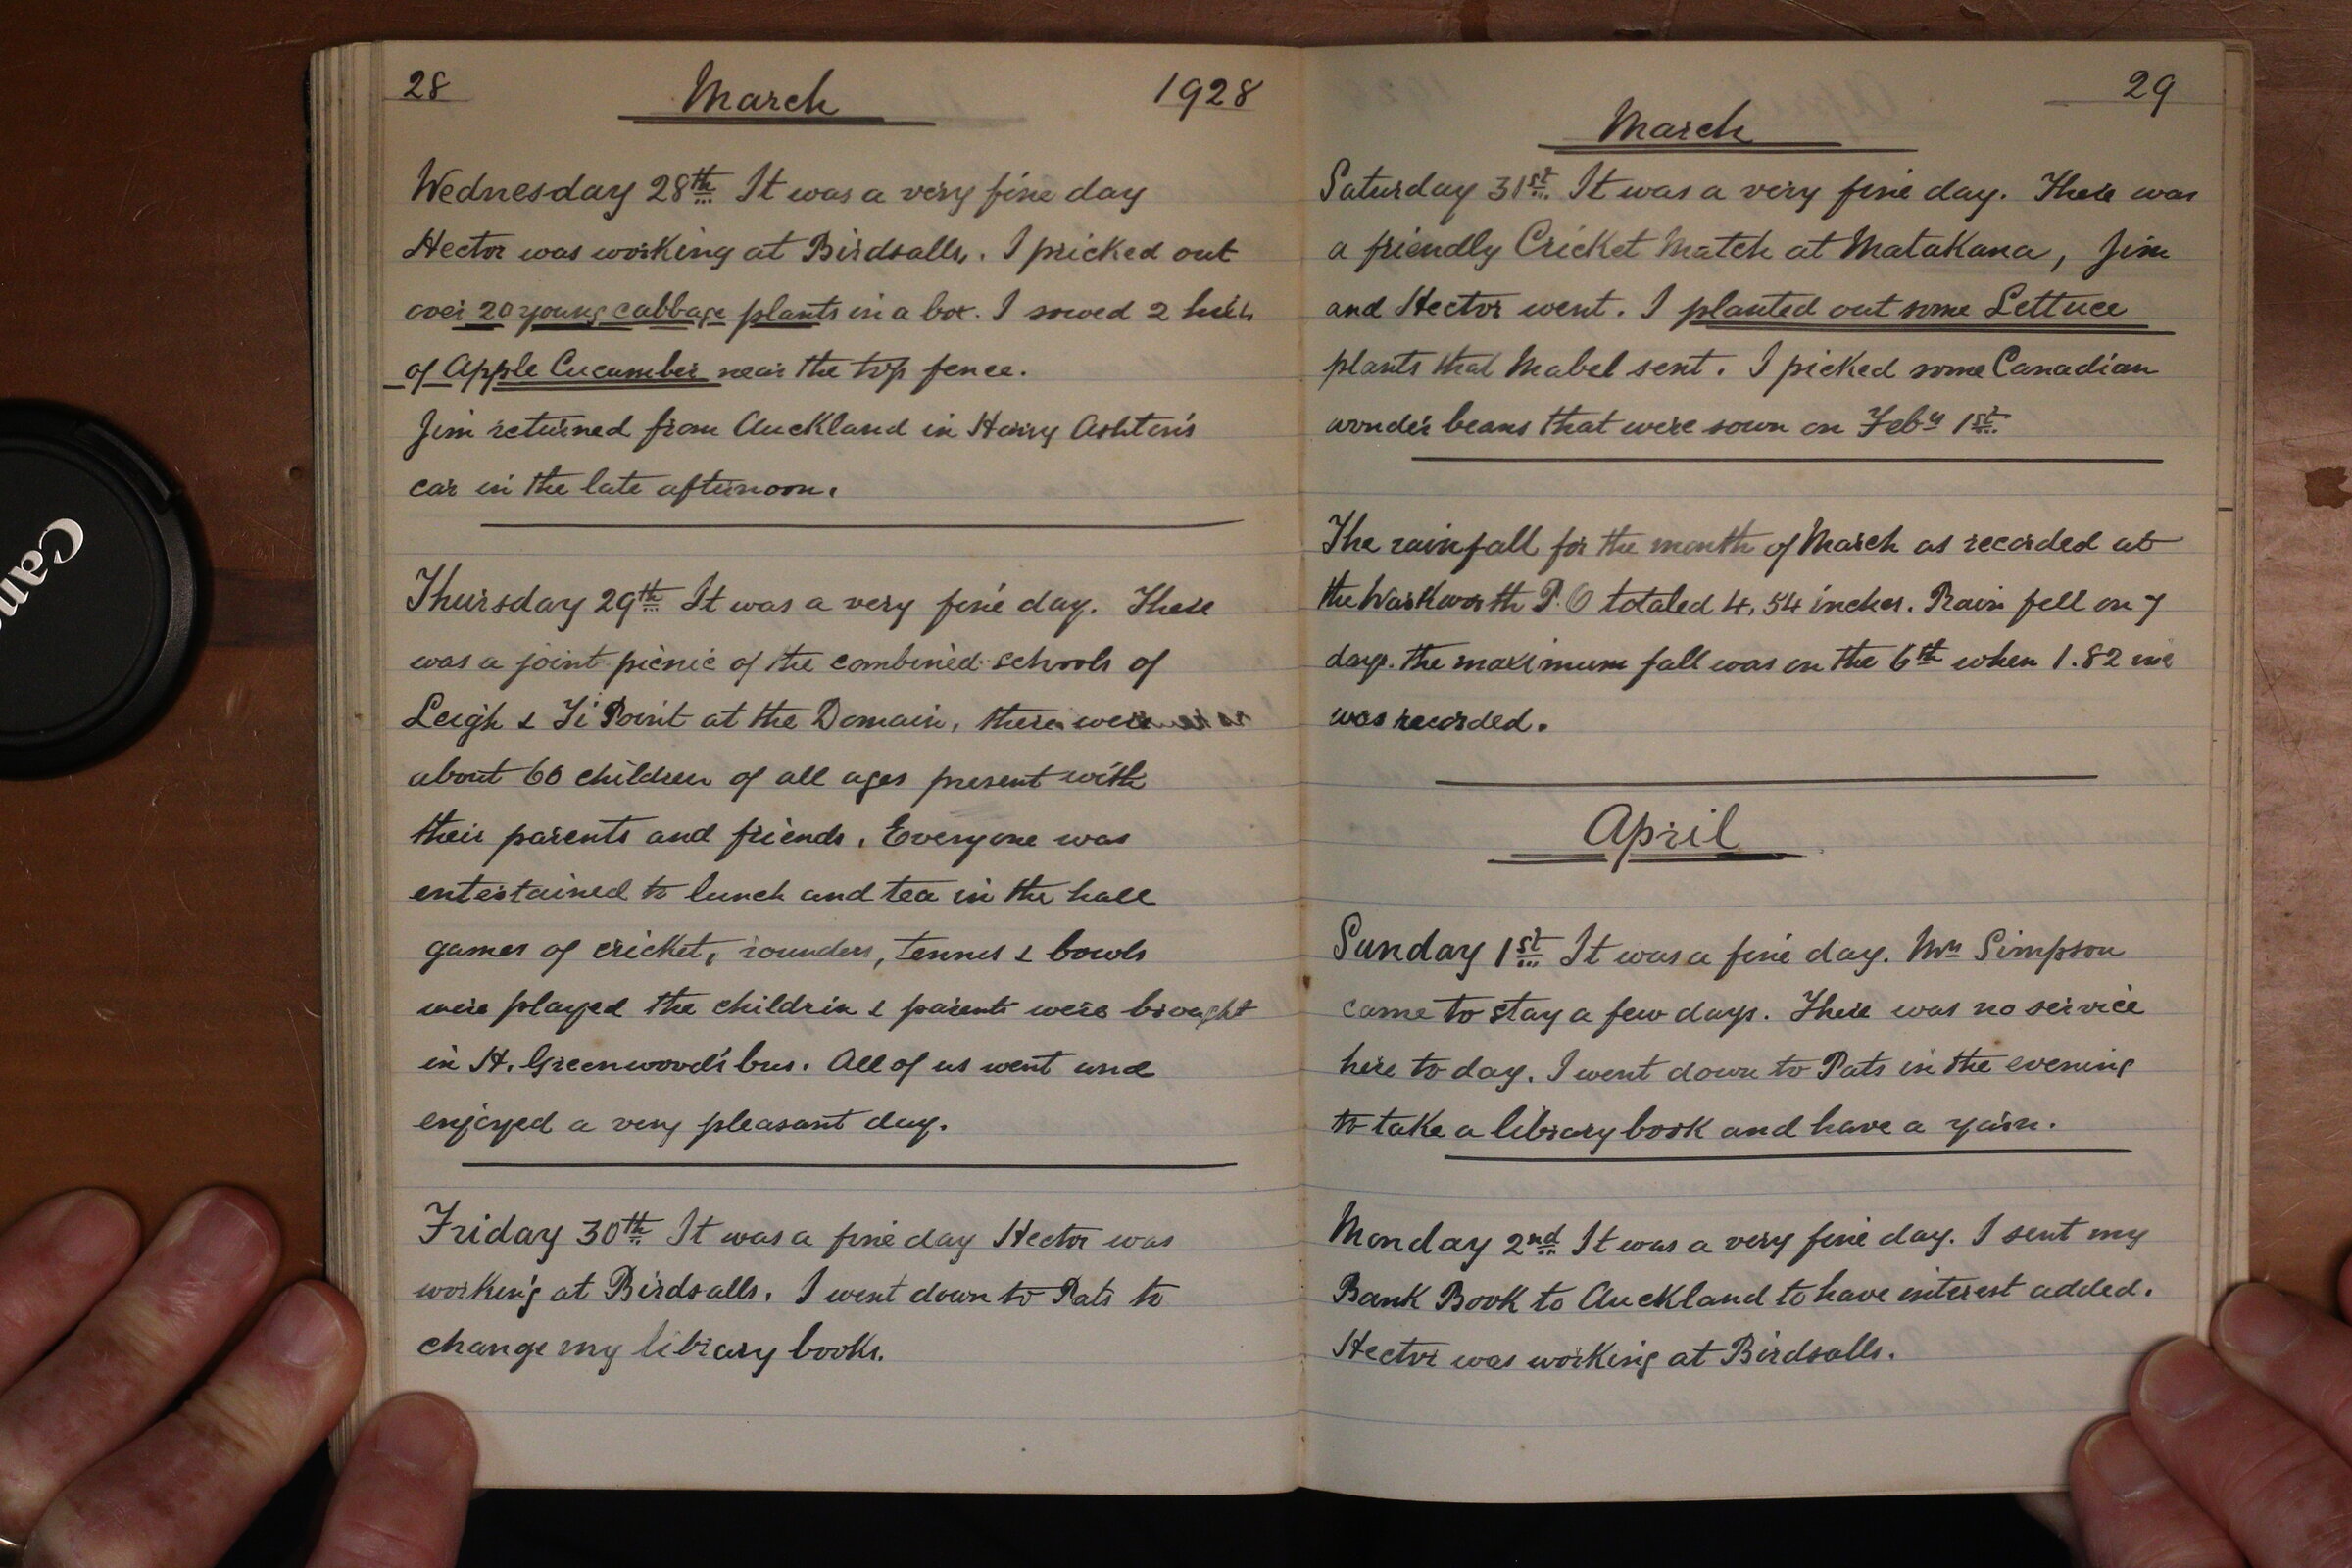 28 March 1928
Wednesday 28th It was a very fine day
Hector was working at Birdsalls. I pricked out
over 20 young cabbage plants in a box. I sowed 2 hills
of Apple Cucumber near the top fence.
Jim returned from Auckland in Harry Ashton's
car in the late afternoon.
Thursday 29th It was a very fine day. There
was a joint picnic of the combined schools of
Leigh & Ti Point at the Domain, there were
about 60 children of all ages present with
their parents and friends. Everyone was
entertained to lunch and tea in the hall
games of cricket, rounders, tennis & bowls
were played the children & parents were brought
in H. Greenwood's bus. All of us went and
enjoyed a very pleasant day.
Friday 30th It was a fine day Hector was
working at Birdsalls. I went down to Pats to
change my library books.
29
March
Saturday 31st It was a very fine day. There was
a friendly Cricket Match at Matakana, Jim
and Hector went. I planted out some Lettuce
plants that Mabel sent. I picked some Canadian
wonder beans that were sown on Feby 1st
The rainfall for the month of March as recorded at
the Warkworth P.O totaled 4.54 inches. Rain fell on 7
days. the maximum fall was on the 6th when 1.82 ins
was recorded.
April
Sunday 1st It was a fine day. Mrs Simpson
came to stay a few days. There was no service
here to day. I went down to Pats in the evening
to take a library book and have a yarn.
Monday 2nd It was a very fine day. I sent my
Bank Book to Auckland to have interest added.
Hector was working at Birdsalls.